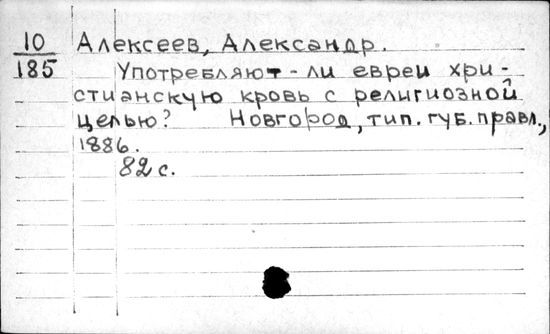 10
185
Алексеев, Александр.
Употребляют-ли евреи хри-
стианскую кровь с религиозной
целью? Новгород, тип. губ. правл.,
1886.
82 с.